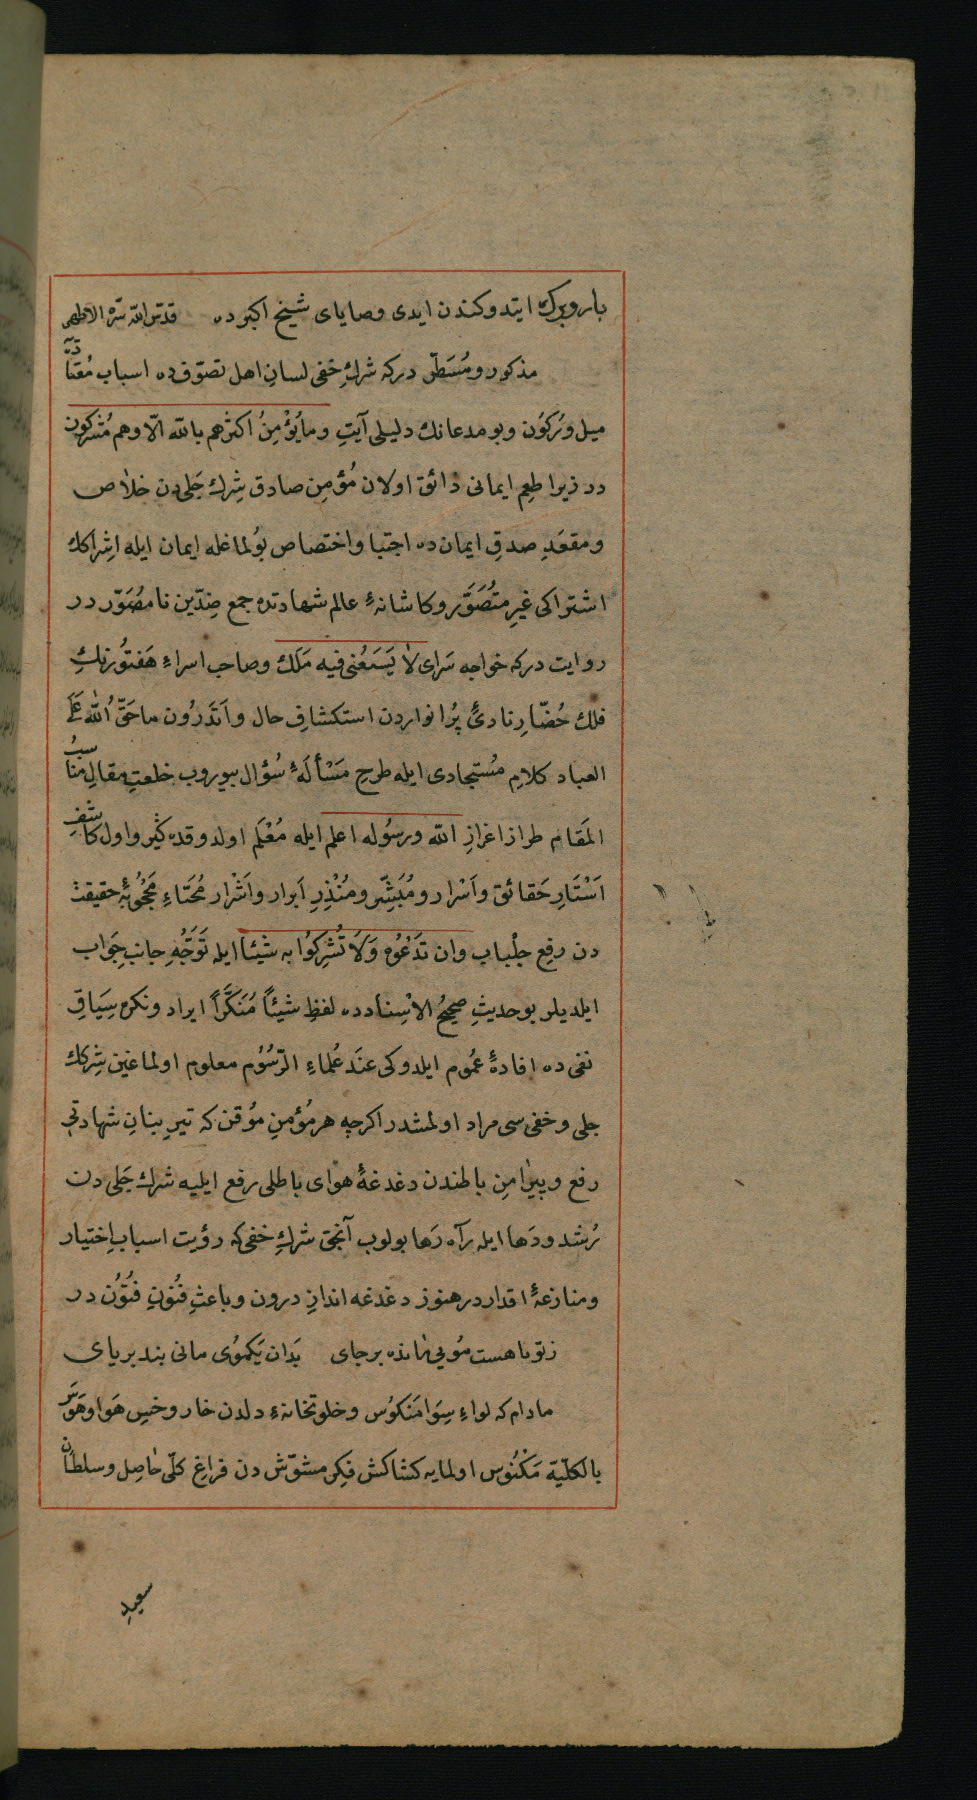 بار و برك ايتدوكندن ايدى وصاياى شيخ اكبرده قدّس اللّه سرّه الاطهر
مذكور و مُسَطّر دركه شركِ خفى لسانِ اهل تصوّفده اسباب مُعْتَادَه
ميل و رُكوُن و بو مدعانك دليلى آيتِ وما يُؤْمِنُ اكثرهم باللّه الّا وهم مُشركون
در زيرا طعِم ايمانى ذائق اولان مُؤمِن صادق شِرك جَلى دن خلاص
ومقعَدِ صدقِ ايمان ده اجتبا واختصاص بُولماغله ايمان ايله اشِراكك
اشتراكى غيرِ متُصَوَّر وكاشانهٔ عالم شهادتده جمع ضِدّين نا مصُوّر در
روايت دركه خواجه سَراى لا يَسَعُنى فيه مَلَك وصاحب اسراءِ هَفتُورنكِ
فلك حُضّارِ نادئُ پُر انواردن استكشافِ حال و اَتَدْرُون ما حَقّ اُللّه عَلَى
العباد كلامِ مُستجادى ايله طرحِ مَسْألَهٔ سُؤال بيوروب خلعتِ مقالِ مناسبُ
المَقام طراز اغرازِ اللّه ورسُوله اعلم ايله مُعْلَم اولدوقده كثير واول كاشفِ
اَسْتَارِ حَقائق واَسْرار ومُبَشِّر ومُنْذِرِ اَبرار واَشْرار مُحَيّاءِ مَحجُوبهٔ حقيقت
دن رفعِ جلْباب وان تدَعُوه وَلَا تُشِركوُا به شيْئاً ايله تَوَجُّهِ جانبِ جَواب
ايلديلر بو حديثِ صحيحُ الاسِناد ده لفظِ شيئاً مُنَكَّراً ايراد ونكره سِيَاقِ
نفى ده افادهٔ عمُوم ايلدوكى عنَد عُلماءِ الرّسُوم معلوم اولماغين شِركك
جلى وخفى سى مراد اولمشدر اكرچه هر مُؤمنِ مُوقن كه تيرِ بنانِ شهادتى
رفع وپيرامِن باطندن دغدغهٔ هواى باطلى رفع ايليه شرك جَلى دن
رُشد ودَها ايله رآه رَها بولوب آنجق شركِ خفى كه رؤيت اسباب اِختيار
ومنازعهٔ اقدار در هنوز دغدغه اندازِ درون وباعثِ فنُونِ فتُون در
زتو تا هست مُويى مانذه بر جاى بَدان يَكموُى مانى بند بر پاى
مادام كه لواءِ سِوَا مَنكوُس وخلوتخانهءِ دلدن خار وخسِ هَوا وهَوَس
بالكلّية مَكْنُوس اولمايه كشاكش فِكر مشوّش دن فراغِ كلّى حاصِل وسلطان
سعيدِ